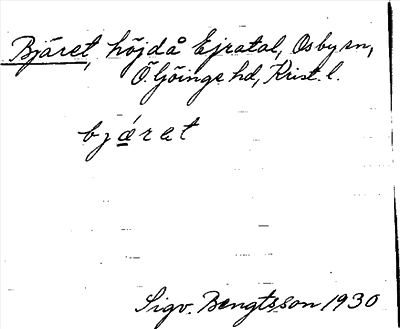 Bjäret, höjd å Ejratal, Osby sn,
Ö. Göinge hd, Krist. l.
bjäret
Sigv. Bengtsson 1930